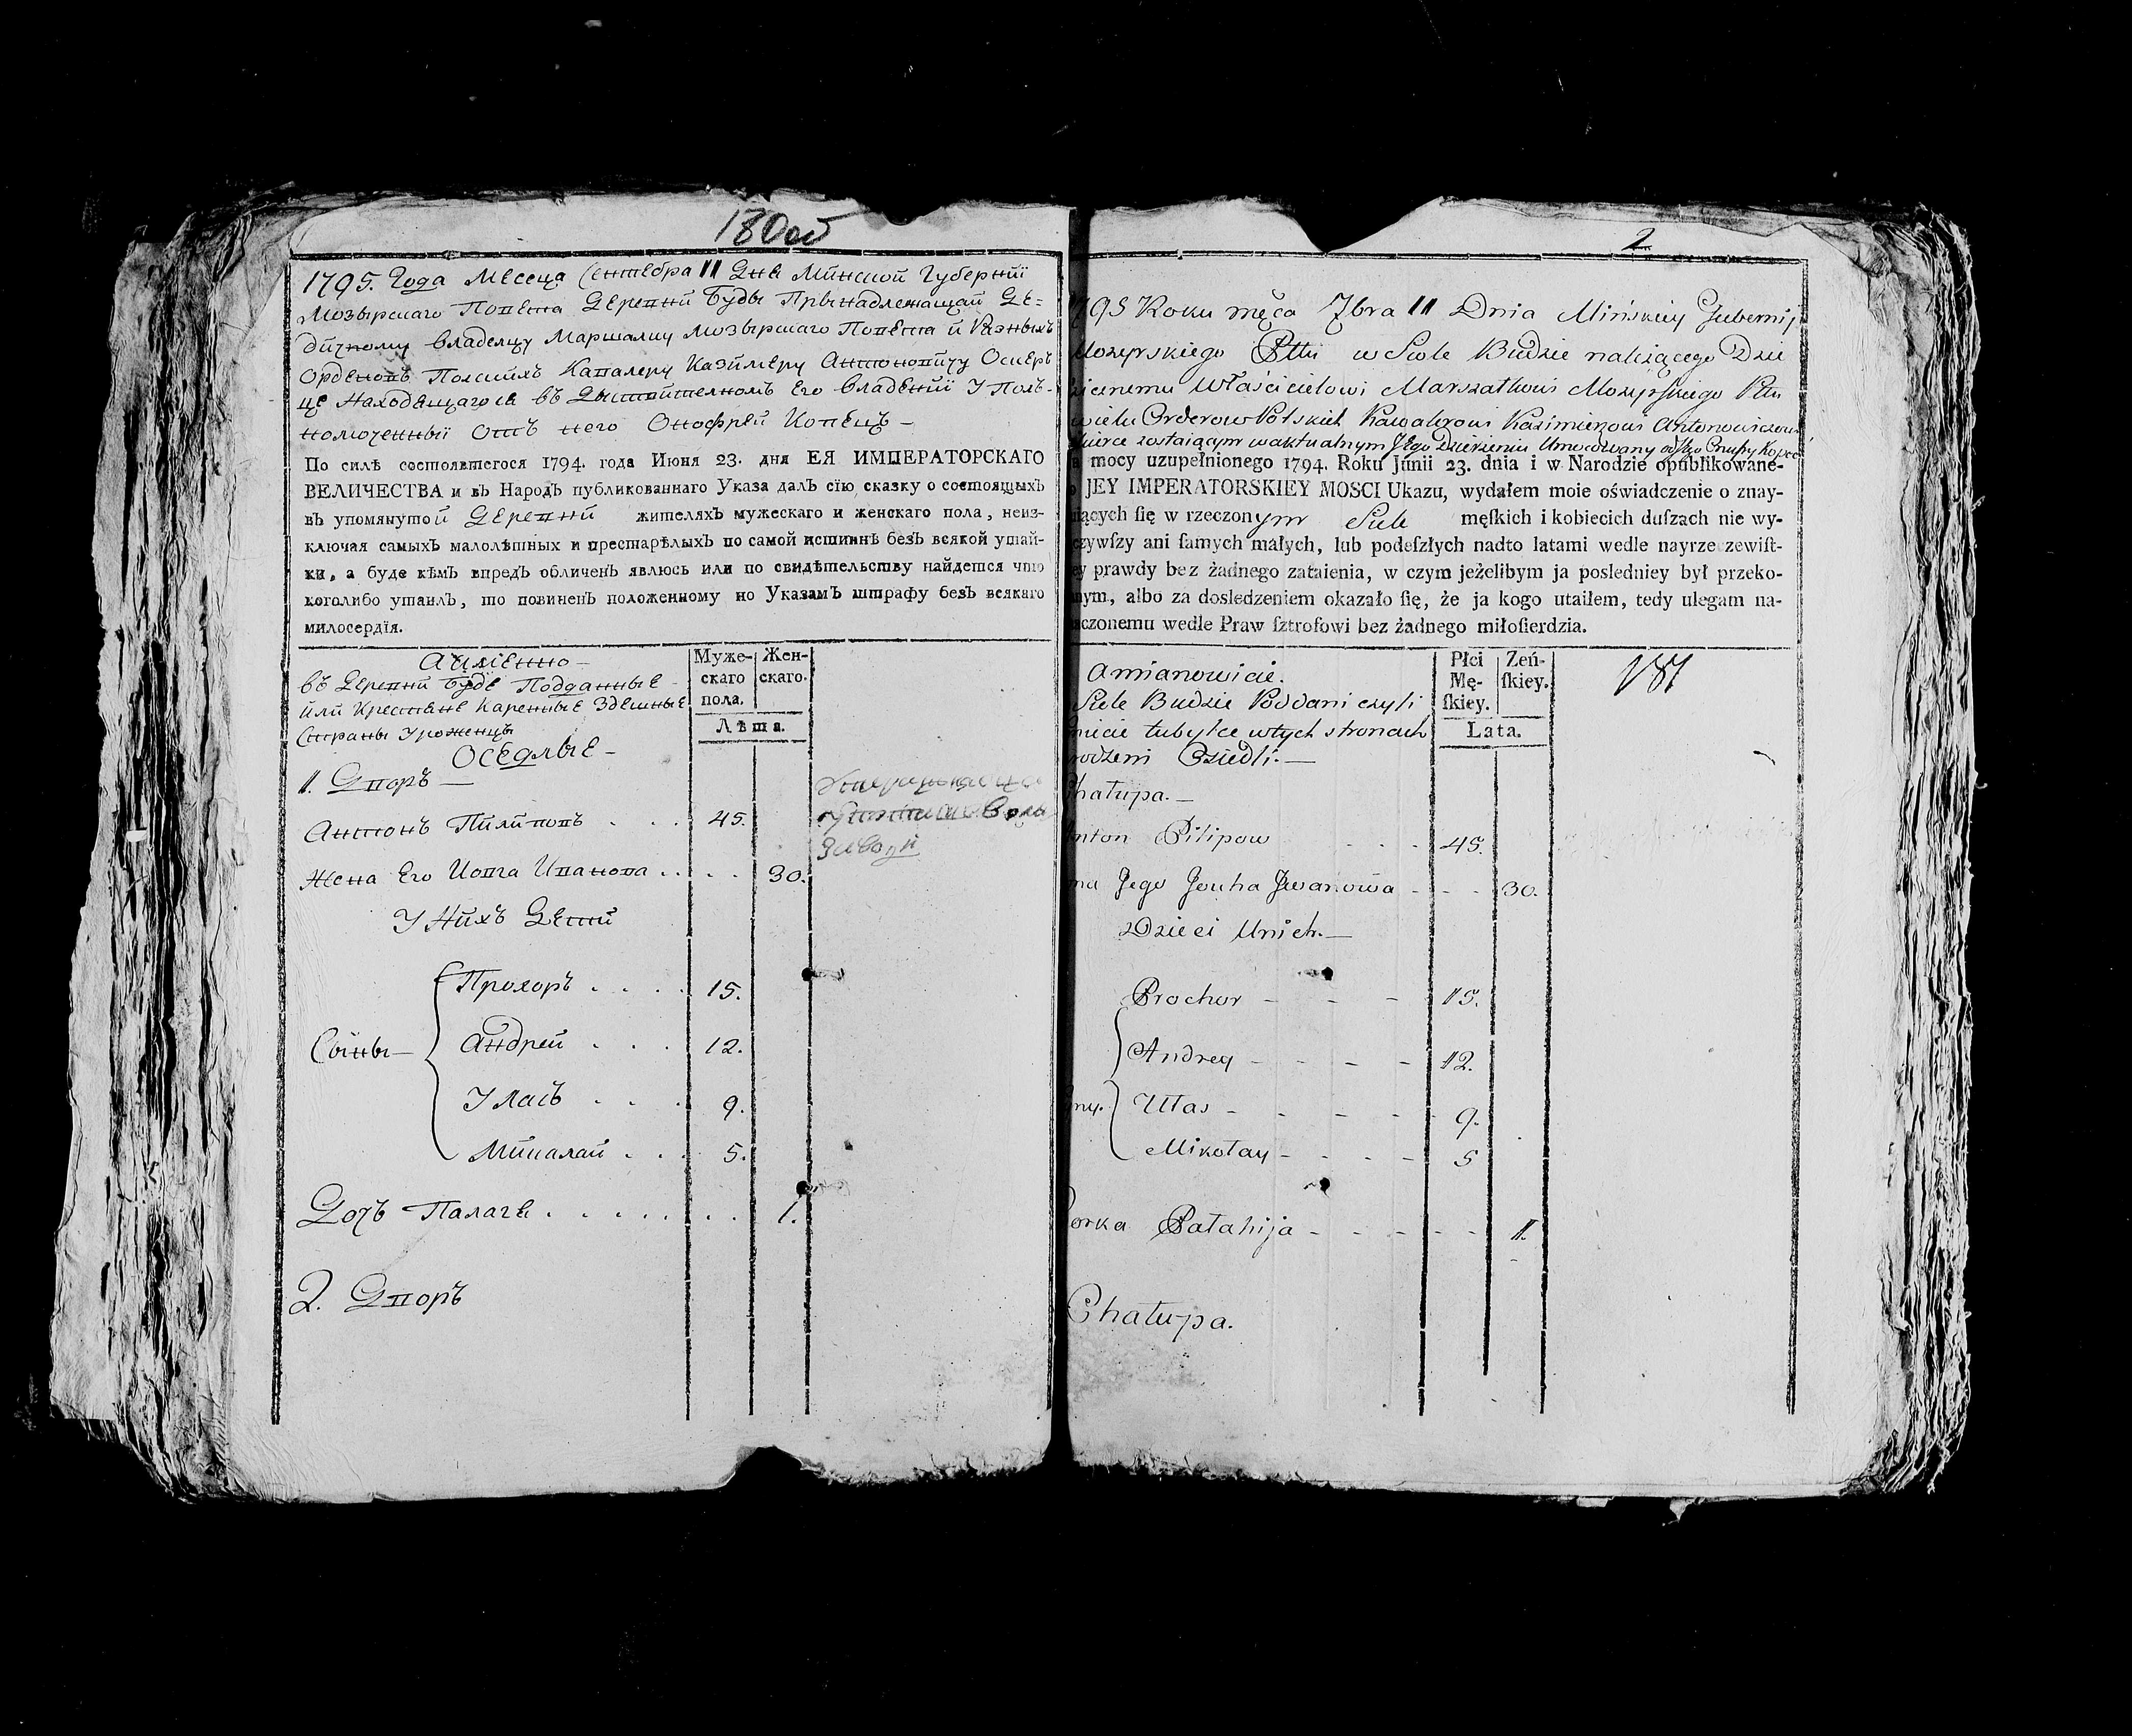 180об
1795. Года Месеца Сентебра 11 Дне Минской Губернïи
Мозырскаго Повета Деревни Буды Прынадлежащай Де=
дичному владелцу Маршалку Мозырского Повета и Разныхъ
Орденовъ Полскихъ Кавалеру Казимеру Антоновичу Оскер
це Находещагосе въ Дыствителномъ Его владении У Пол-
номоченныи Отъ него Онофрей Копець —
По силѣ состоявшегося 1794. года Июня 23. дня ЕЯ ИМПЕРАТОРСКАГО
ВЕЛИЧЕСТВА и въ Народъ публикованнаго Указа далъ сїю сказку о состоящыхъ
въ упомянутой Деревни жителяхъ мужескаго и женскаго пола, неиз-
ключая самыхъ малолѣтных и престарѣлыхъ по самой истиннѣ безъ всякой утай-
ки, а буде кѣмъ впредъ обличенъ явлюсь или по свидѣтельству найдется что
коголибо утаилъ, то повиненъ положенному но Указамъ штрафу безъ всякаго
милосердїя.
Аименно —
въ Деревни Буде Подданные
или Крестяне Кареные Здешные
Страны Уроженцы
Оседлые —
Муже-
скаго
пола.
Жен-
скаго.
Лѣта.
1. Дворъ —
Антонъ Пилиповъ . . . 45.
Жена Его Иовга Иванова . . . . 30.
У Нихъ Дети
Прохоръ . . . . 15.
Сыны — Андрей . . . 12.
Уласъ . . . 9.
Микалай . . . 5.
Дочъ Палаге . . . . . . . 1.
2. Дворъ
2
795 Roku męca 7bra 11 Dnia Mińskiey Gubernij
Mozyrskiego Pttu w Siole Budzie należącego Dzie
zicznemu Właścicielowi Marszałkowi Mozyrskiego Pttu
wielu Orderow Polskich Kawalerowi Kazimierzowi Antonowiczowi
skierce zostaiącym w aktualnym Jego Dzierżeniu Umocowany od Jego Onufry Kopec
a mocy uzupełnionego 1794. Roku Junii 23. dnia i w Narodzie opublikowane-
o JEY IMPERATORSKIEY MOSCI Ukazu, wydałem moie oświadczenie o znay-
iących ſię w rzeczonym Siele męſkich i kobiecich duſzach nie wy-
czywſzy ani ſamych małych, lub podeſzłych nadto latami wedle nayrzeczewiſt-
ey prawdy bez żadnego zataienia, w czym jeżelibym ja posledniey był przeko-
nym, albo za dosledzeniem okazało ſię, że ja kogo utaiłem, tedy ulegam na-
aczonemu wedle Praw ſztrofowi bez żadnego miłoſierdzia.
amianowicie.
Siele Budzie Poddani czyli
mieie tubylce wtych stronach
rodzeni Osiedli. —
Płci
Mę-
ſkiey.
Zeń-
ſkiey.
Lata.
181
Chatupa. —
nton Pilipow . . . 45.
na Jego Jouha Jwanowa - - - 30.
Dzieci Unich. —
Prochor - - - 15.
Andrey - - - - 12.
ny. Ułas - - - - 9.
Mikołay - - - - 5
orka Pałahija - - - - - 1.
Chatupa.